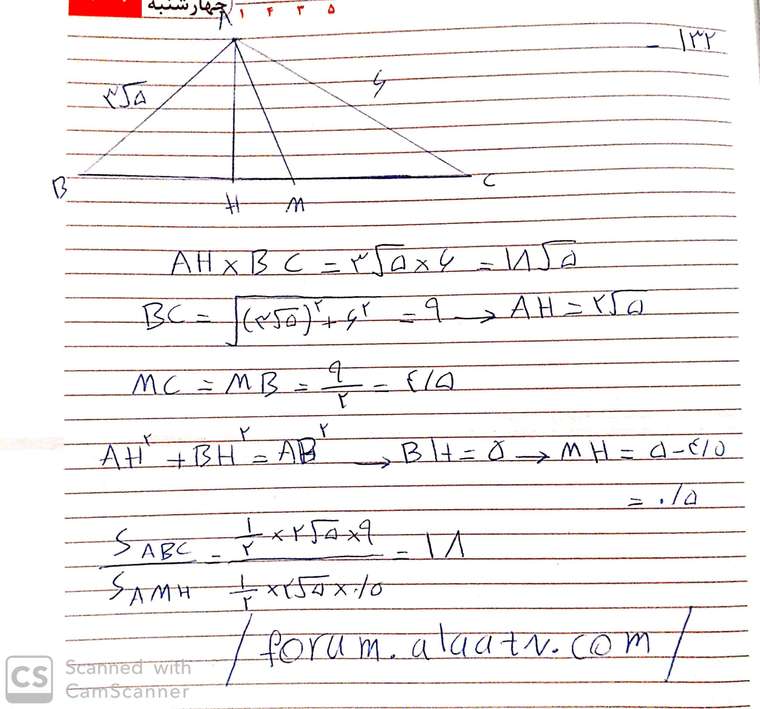 چهارشنبه
۱ ۴ ۳ ۵
۱۳۲ -
A
۳√۵
۶
B H M C
AH × BC = ۳√۵ × ۶ = ۱۸√۵
BC = √((۳√۵)^۲ + ۶^۲) = ۹ → AH = ۲√۵
MC = MB = ۹/۲ = ۴/۵
AH^۲ + BH^۲ = AB^۲ → BH = ۵ → MH = ۵ - ۴/۵
= ۰/۵
S ABC / S AMH = (۱/۲ × ۲√۵ × ۹) / (۱/۲ × ۲√۵ × ۰/۵) = ۱۸
/ forum.alaatv.com /
CS Scanned with
CamScanner